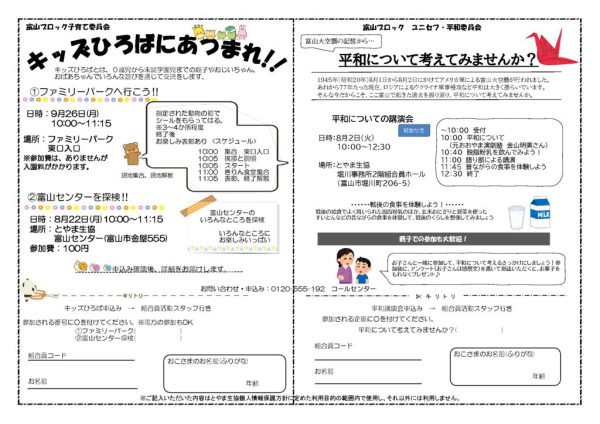 富山ブロック子育て委員会
キッズひろばにあつまれ!!
キッズひろばとは、0歳児から未就学児までの親子やおじいちゃん、
おばあちゃんでいろんな遊びを通じて交流をします。
①ファミリーパークへ行こう!!
日時:9月26日(月)
10:00~11:15
場所:ファミリーパーク
東口入口
※参加費は、ありませんが
入園料がかかります。
現地集合、現地解散
指定された動物の前で
シールをもらってはる。
※3~4か所程度
終了後
お楽しみ表彰あり <スケジュール>
10:00 集合 東口入口
10:05 挨拶と説明
10:05 スタート
11:00 きりん食堂集合
11:05 表彰、終了解散
②富山センターを探検!!
日時:8月22日(月)10:00~11:15
場所:とやま生協
富山センター(富山市金屋555)
参加費:100円
富山センターの
いろんなところを探検
いろんなところに
お楽しみいっぱい
申込み確認後、詳細をお届けします。
お問い合わせ・申込み:0120-555-192 コールセンター
キリトリ
キッズひろば申込み → 組合員活動スタッフ行き
参加される番号に〇を付けてください。※両方の参加もOK
①ファミリーパーク( )
②富山センター探検( )
組合員コード
お名前
おこさまのお名前(ふりがな)
年齢
富山ブロック ユニセフ・平和委員会
富山大空襲の記憶から…
平和について考えてみませんか?
1945年(昭和20年)8月1日から8月2日にかけてアメリカ軍による富山大空襲が行われました。
あれから77年たった現在、ロシアによるウクライナ軍事侵攻など平和は大きく揺らいでいます。
そんな今だからこそ、ここ富山で起きた過去を振り返り、平和について考えてみませんか。
平和についての講演会
日時:8月2日(火)
10:00~12:30
場所:とやま生協
堀川事務所2階組合員ホール
(富山市堀川町206-5)
~10:00 受付
10:00 平和について
(元おおやま演劇塾 金山明美さん)
10:40 脱脂粉乳を飲んでみよう!
11:00 語り部による講演
11:45 昔ながらの食事を体験しよう
12:30 終了
・・・・・戦後の食事を体験しよう!・・・・・
戦後の給食でよく用いられた脱脂粉乳のほか、玄米おにぎりと野菜を使った
すいとんなどの昔ながらの食事を体験して、戦後のくらしを想像してみましょう
MILK
親子での参加も大歓迎!
お子さんと一緒に参加して、平和について考えるきっかけにしましょう!参
加後に、アンケート(お子さんは感想文)を書いて返送いただくと、お菓子を
もれなくプレゼント♪
キリトリ
平和講演会申込み → 組合員活動スタッフ行き
参加される企画に〇を付けてください。
平和について考えてみませんか?( )
組合員コード
お名前
おこさまのお名前(ふりがな)
年齢
※ご記入いただいた内容はとやま生協個人情報保護方針に定めた利用目的の範囲内で使用し、それ以外には利用しません。